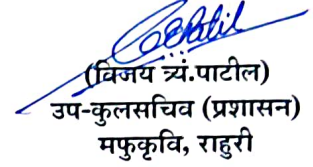 (विजय त्र्यं.पाटील)
उप-कुलसचिव (प्रशासन)
मफुकृवि, राहुरी